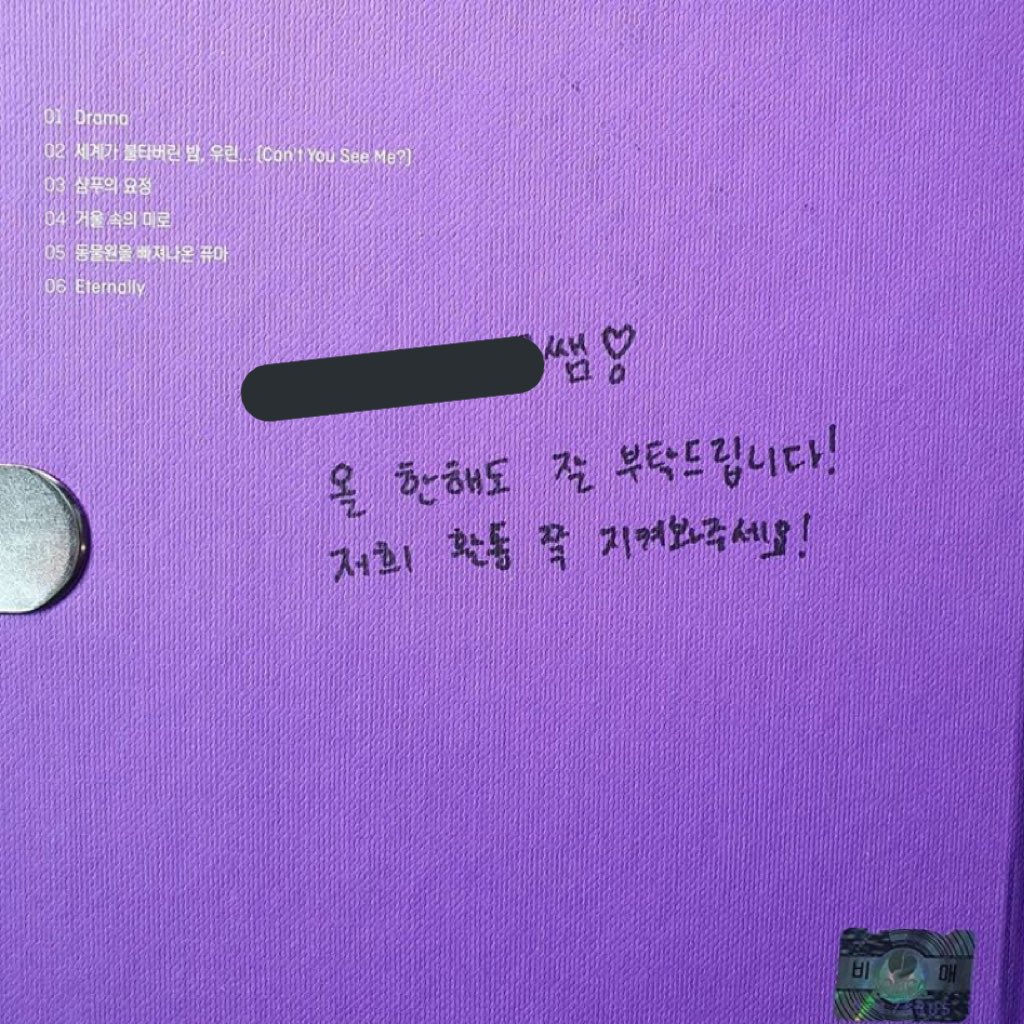 01 Drama
02 세계가 불타버린 밤, 우린... (Can't You See Me?)
03 샴푸의 요정
04 거울 속의 미로
05 동물원을 빠져나온 퓨마
06 Eternally
쌤♡
올 한해도 잘 부탁드립니다!
저희 활동 쭉 지켜봐주세요!
비 매